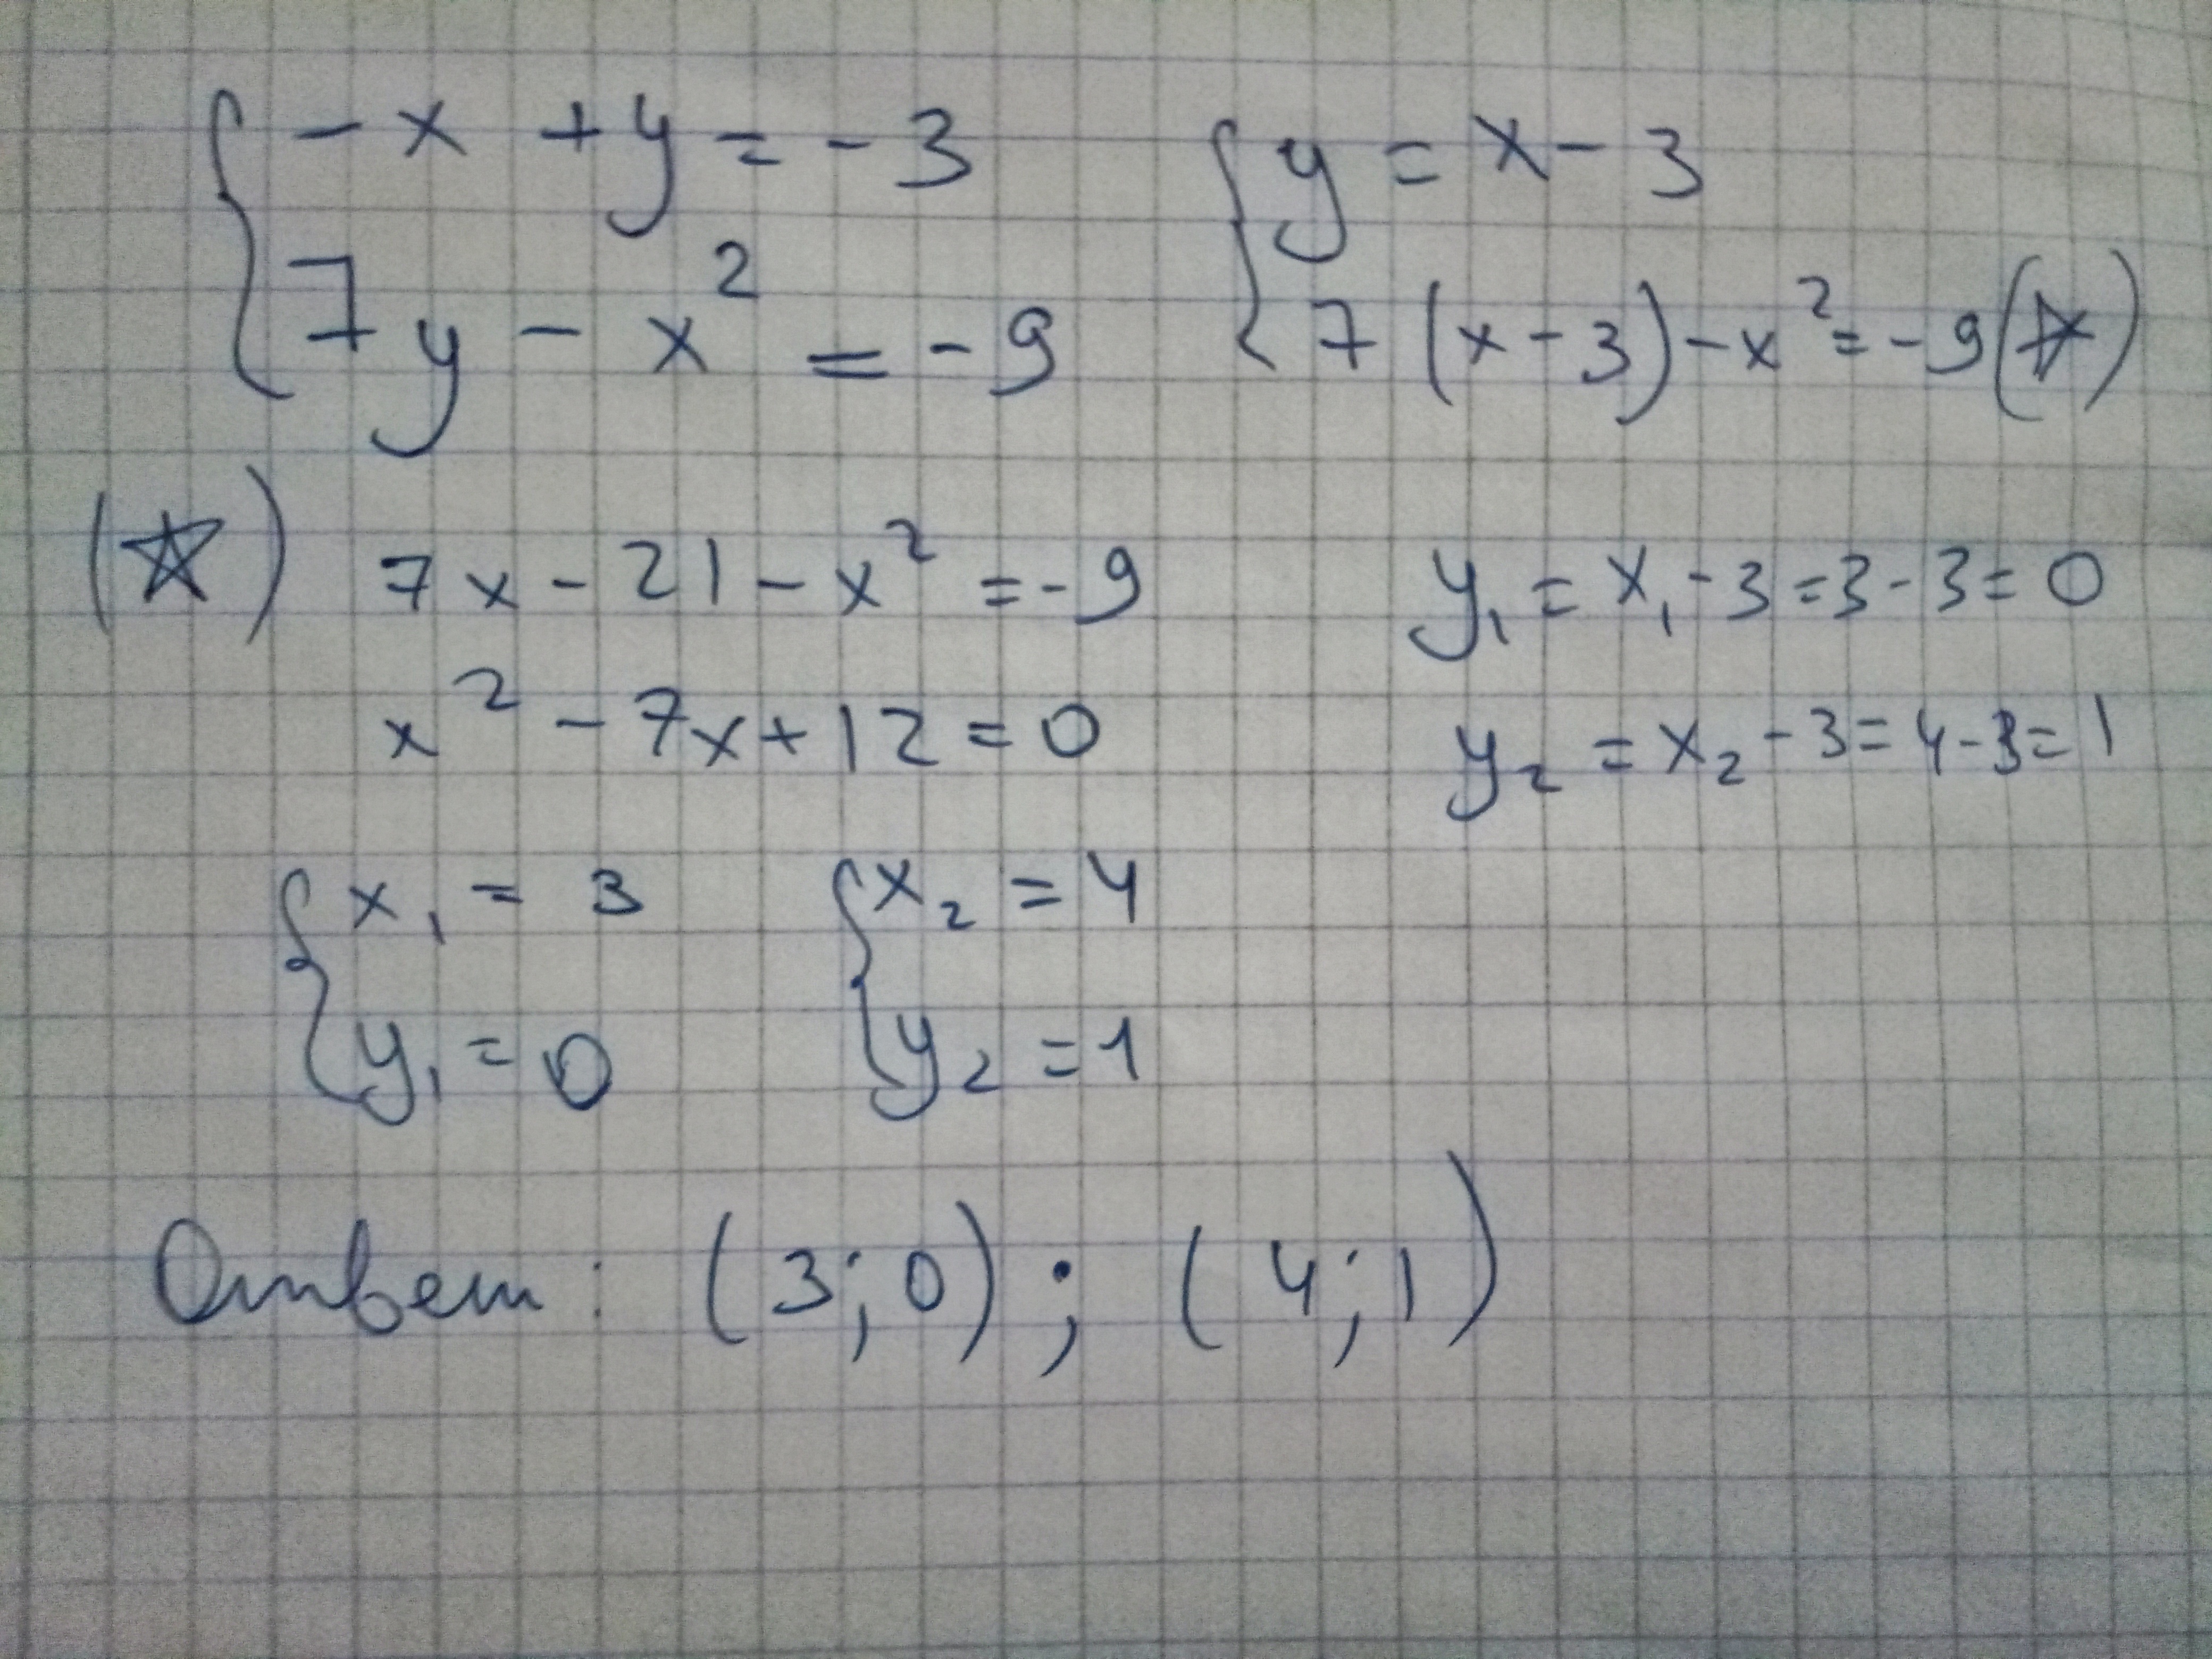 { -x + y = -3
7y - x² = -9
{ y = x - 3
7(x - 3) - x² = -9 (☆)
(☆) 7x - 21 - x² = -9
x² - 7x + 12 = 0
y₁ = x₁ - 3 = 3 - 3 = 0
y₂ = x₂ - 3 = 4 - 3 = 1
{ x₁ = 3
y₁ = 0
{ x₂ = 4
y₂ = 1
Ответ: (3; 0); (4; 1)